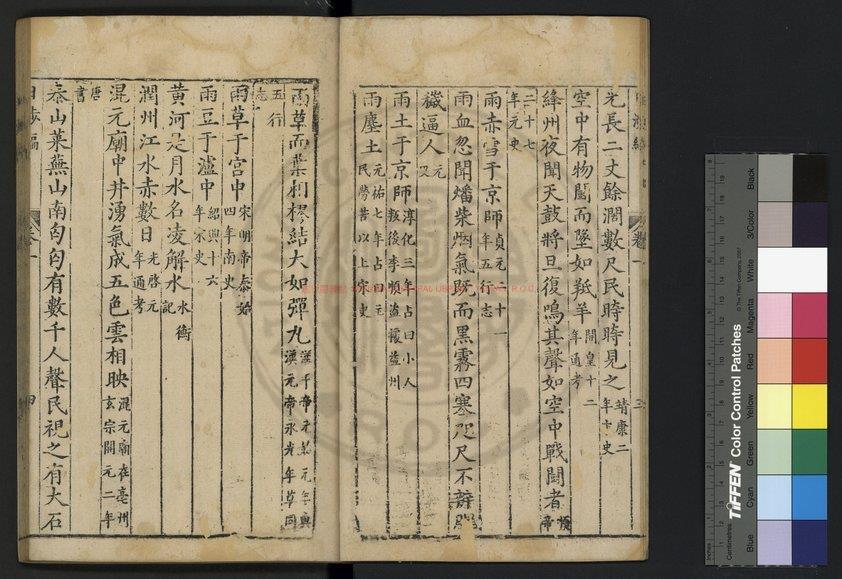 光長二丈餘濶數尺民時時見之 靖康二年十史
空中有物鬭而墜如羝羊 開皇十二年通考
絳州夜聞天鼓將旦復鳴其聲如空中戰鬭者 順帝
二十七年元史
雨赤雪于京師 貞元二十一年五行志
雨血忽聞燔柴烟氣既而黑霧四塞咫尺不辨
穢逼人 元又
雨土于京師 淳化三年占曰小人叛後李順盗據益州
雨塵土 元祐七年占曰主民勞苦以上宋史
雨草而葉相樛結大如彈丸 漢元帝永光年草同
五行志
雨草于宫中 宋明帝泰始四年南史
雨豆于瀘中 紹興十六年宋史
黄河是月水名凌解水 水衡記
潤州江水赤數日 光啓元年通考
混元廟中井湧氣成五色雲相映 混元廟在亳州玄宗開元二年
唐書
泰山萊蕪山南匈匈有數千人聲民視之有大石
卷一
四
卷一
三
Black
3/Color
White
Magenta
Red
Yellow
Green
Cyan
Blue
TIFFEN Color Control Patches
© The Tiffen Company, 2007
Inches
Centimetres